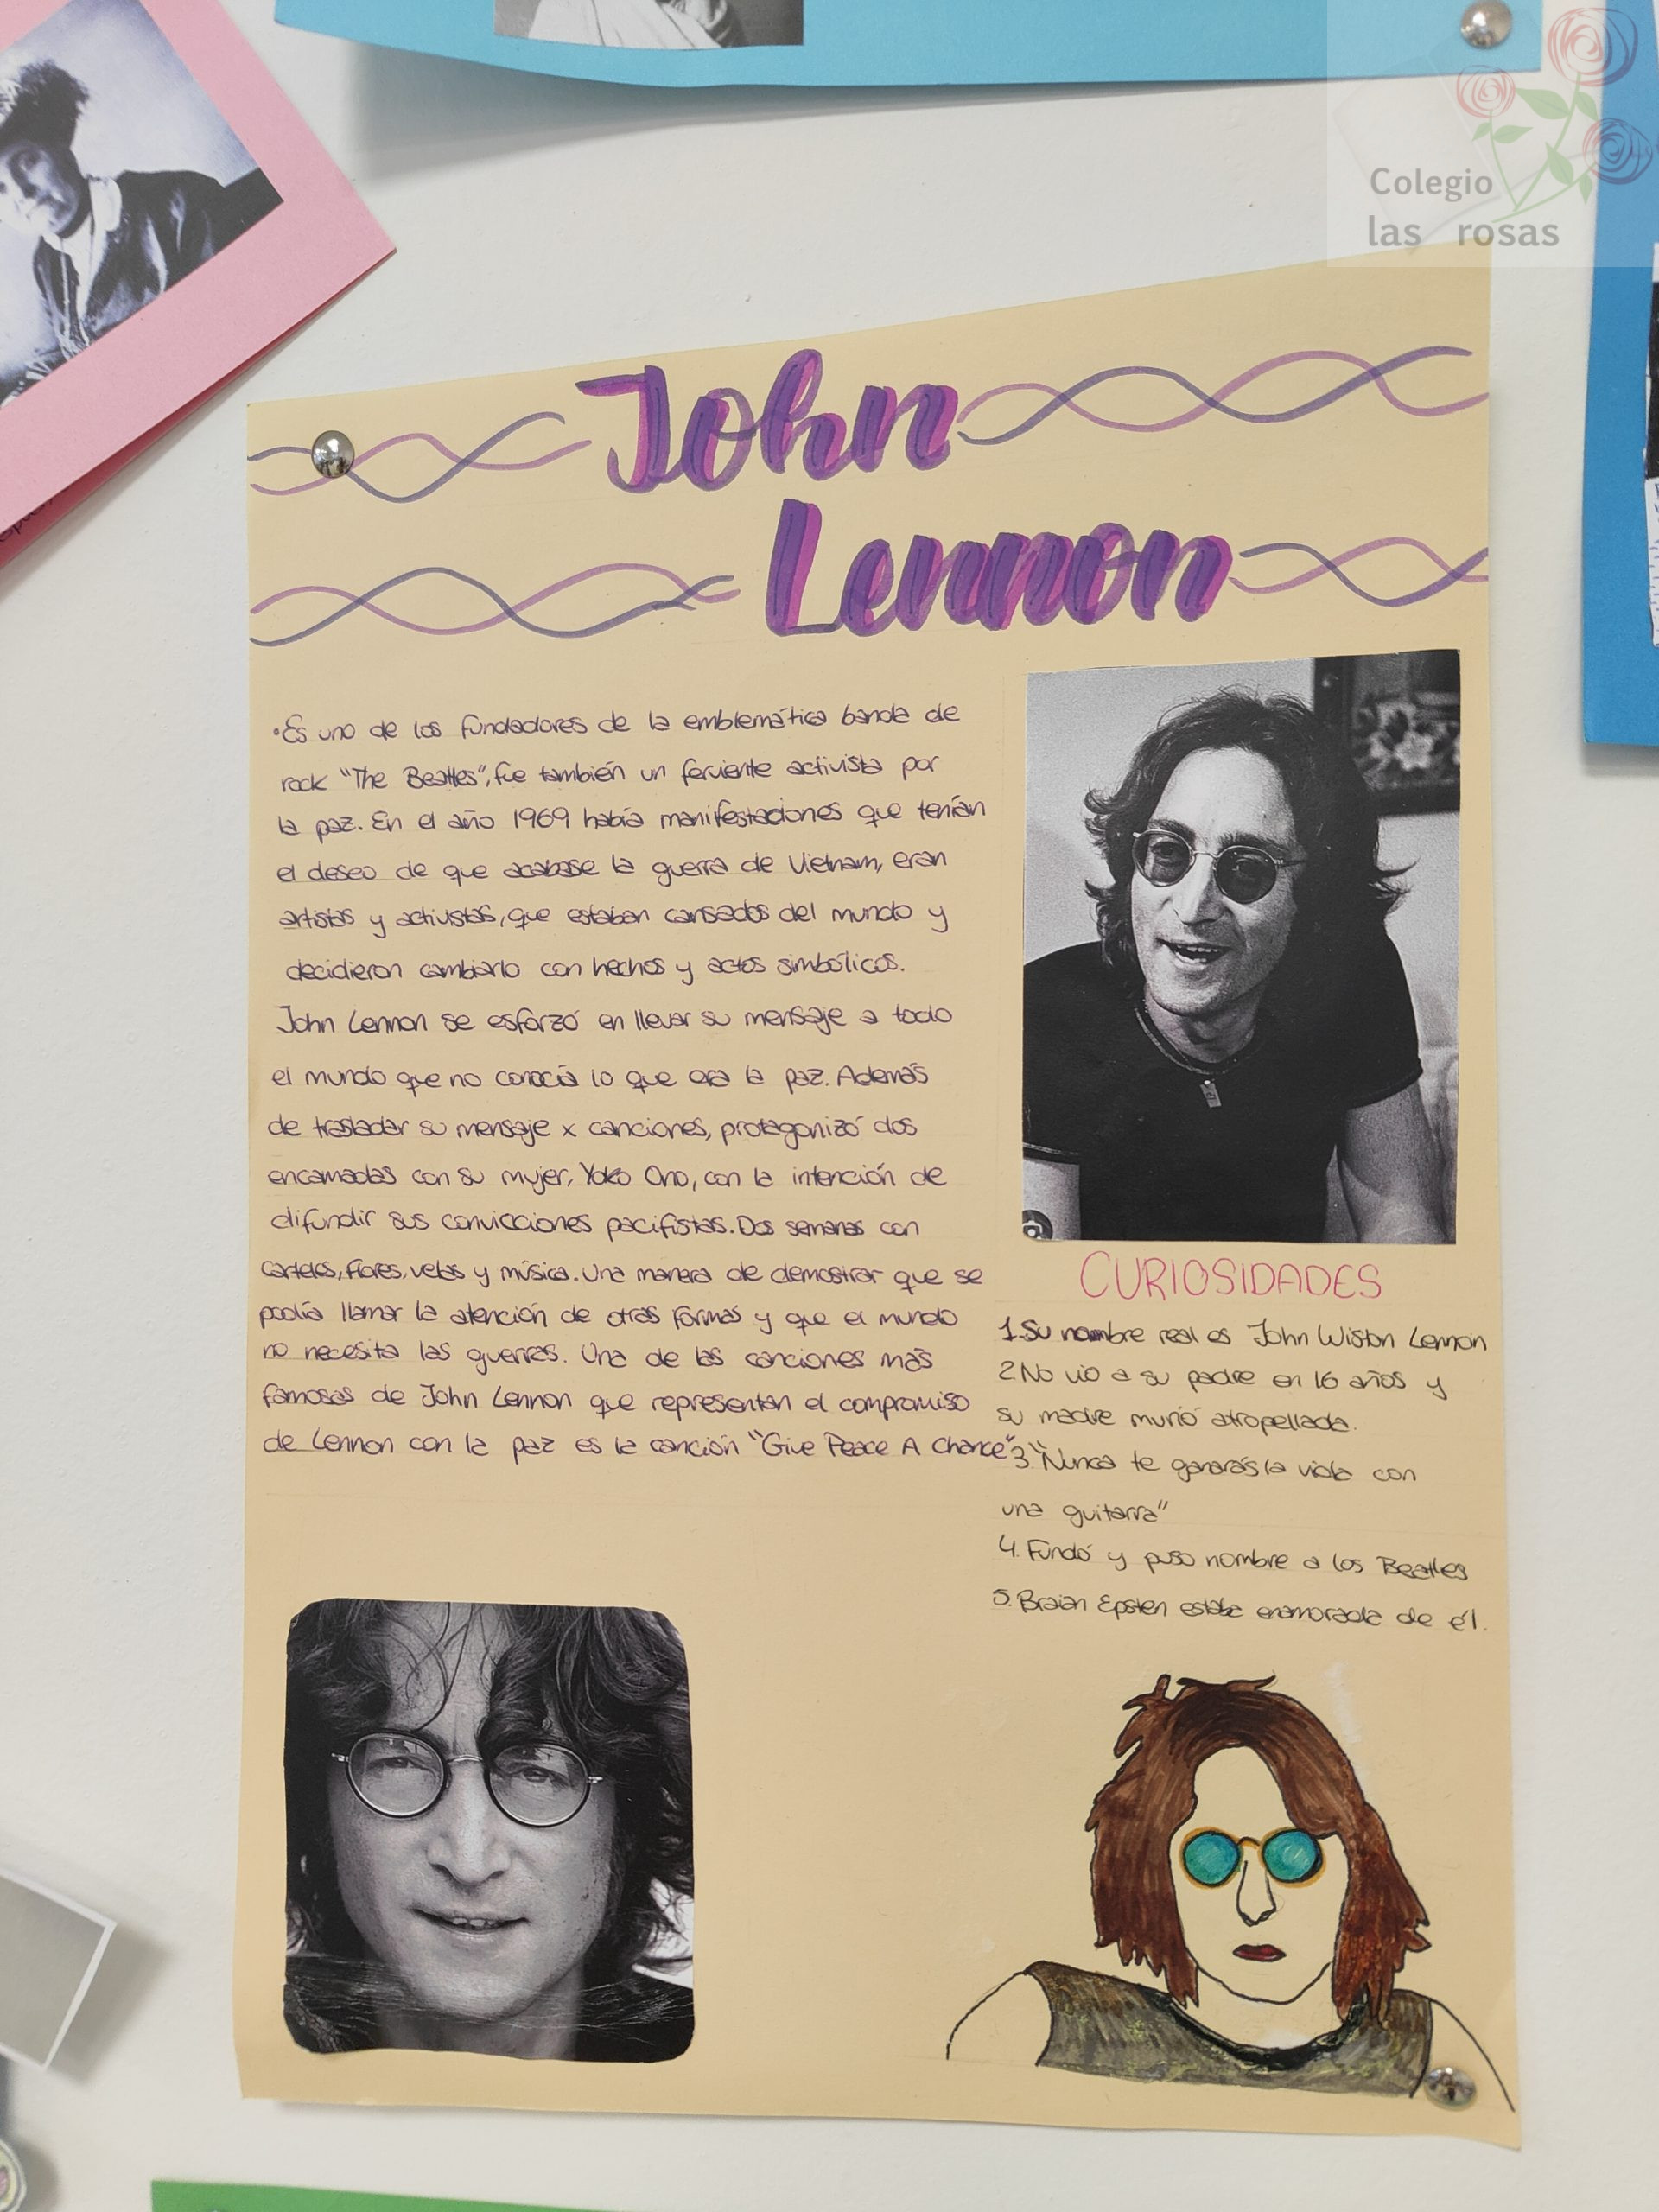 Colegio
las rosas
John
Lennon
•Es uno de los fundadores de la emblemática banda de
rock "The Beatles", fue también un ferviente activista por
la paz. En el año 1969 había manifestaciones que tenían
el deseo de que acabase la guerra de Vietnam, eran
artistas y activistas, que estaban cansados del mundo y
decidieron cambiarlo con hechos y actos simbólicos.
John Lennon se esforzó en llevar su mensaje a todo
el mundo que no conocía lo que era la paz. Además
de trasladar su mensaje x canciones, protagonizó dos
encamadas con su mujer, Yoko Ono, con la intención de
difundir sus convicciones pacifistas. Dos semanas con
carteles, flores, velas y música. Una manera de demostrar que se
podía llamar la atención de otras formas y que el mundo
no necesita las guerras. Una de las canciones más
famosas de John Lennon que representan el compromiso
de Lennon con la paz es la canción "Give Peace A Chance"
CURIOSIDADES
1.Su nombre real es John Wiston Lennon
2.No vio a su padre en 16 años y
su madre murió atropellada.
3."Nunca te ganarás la vida con
una guitarra"
4. Fundó y puso nombre a los Beatles
5. Braian Epsten estaba enamorada de él.